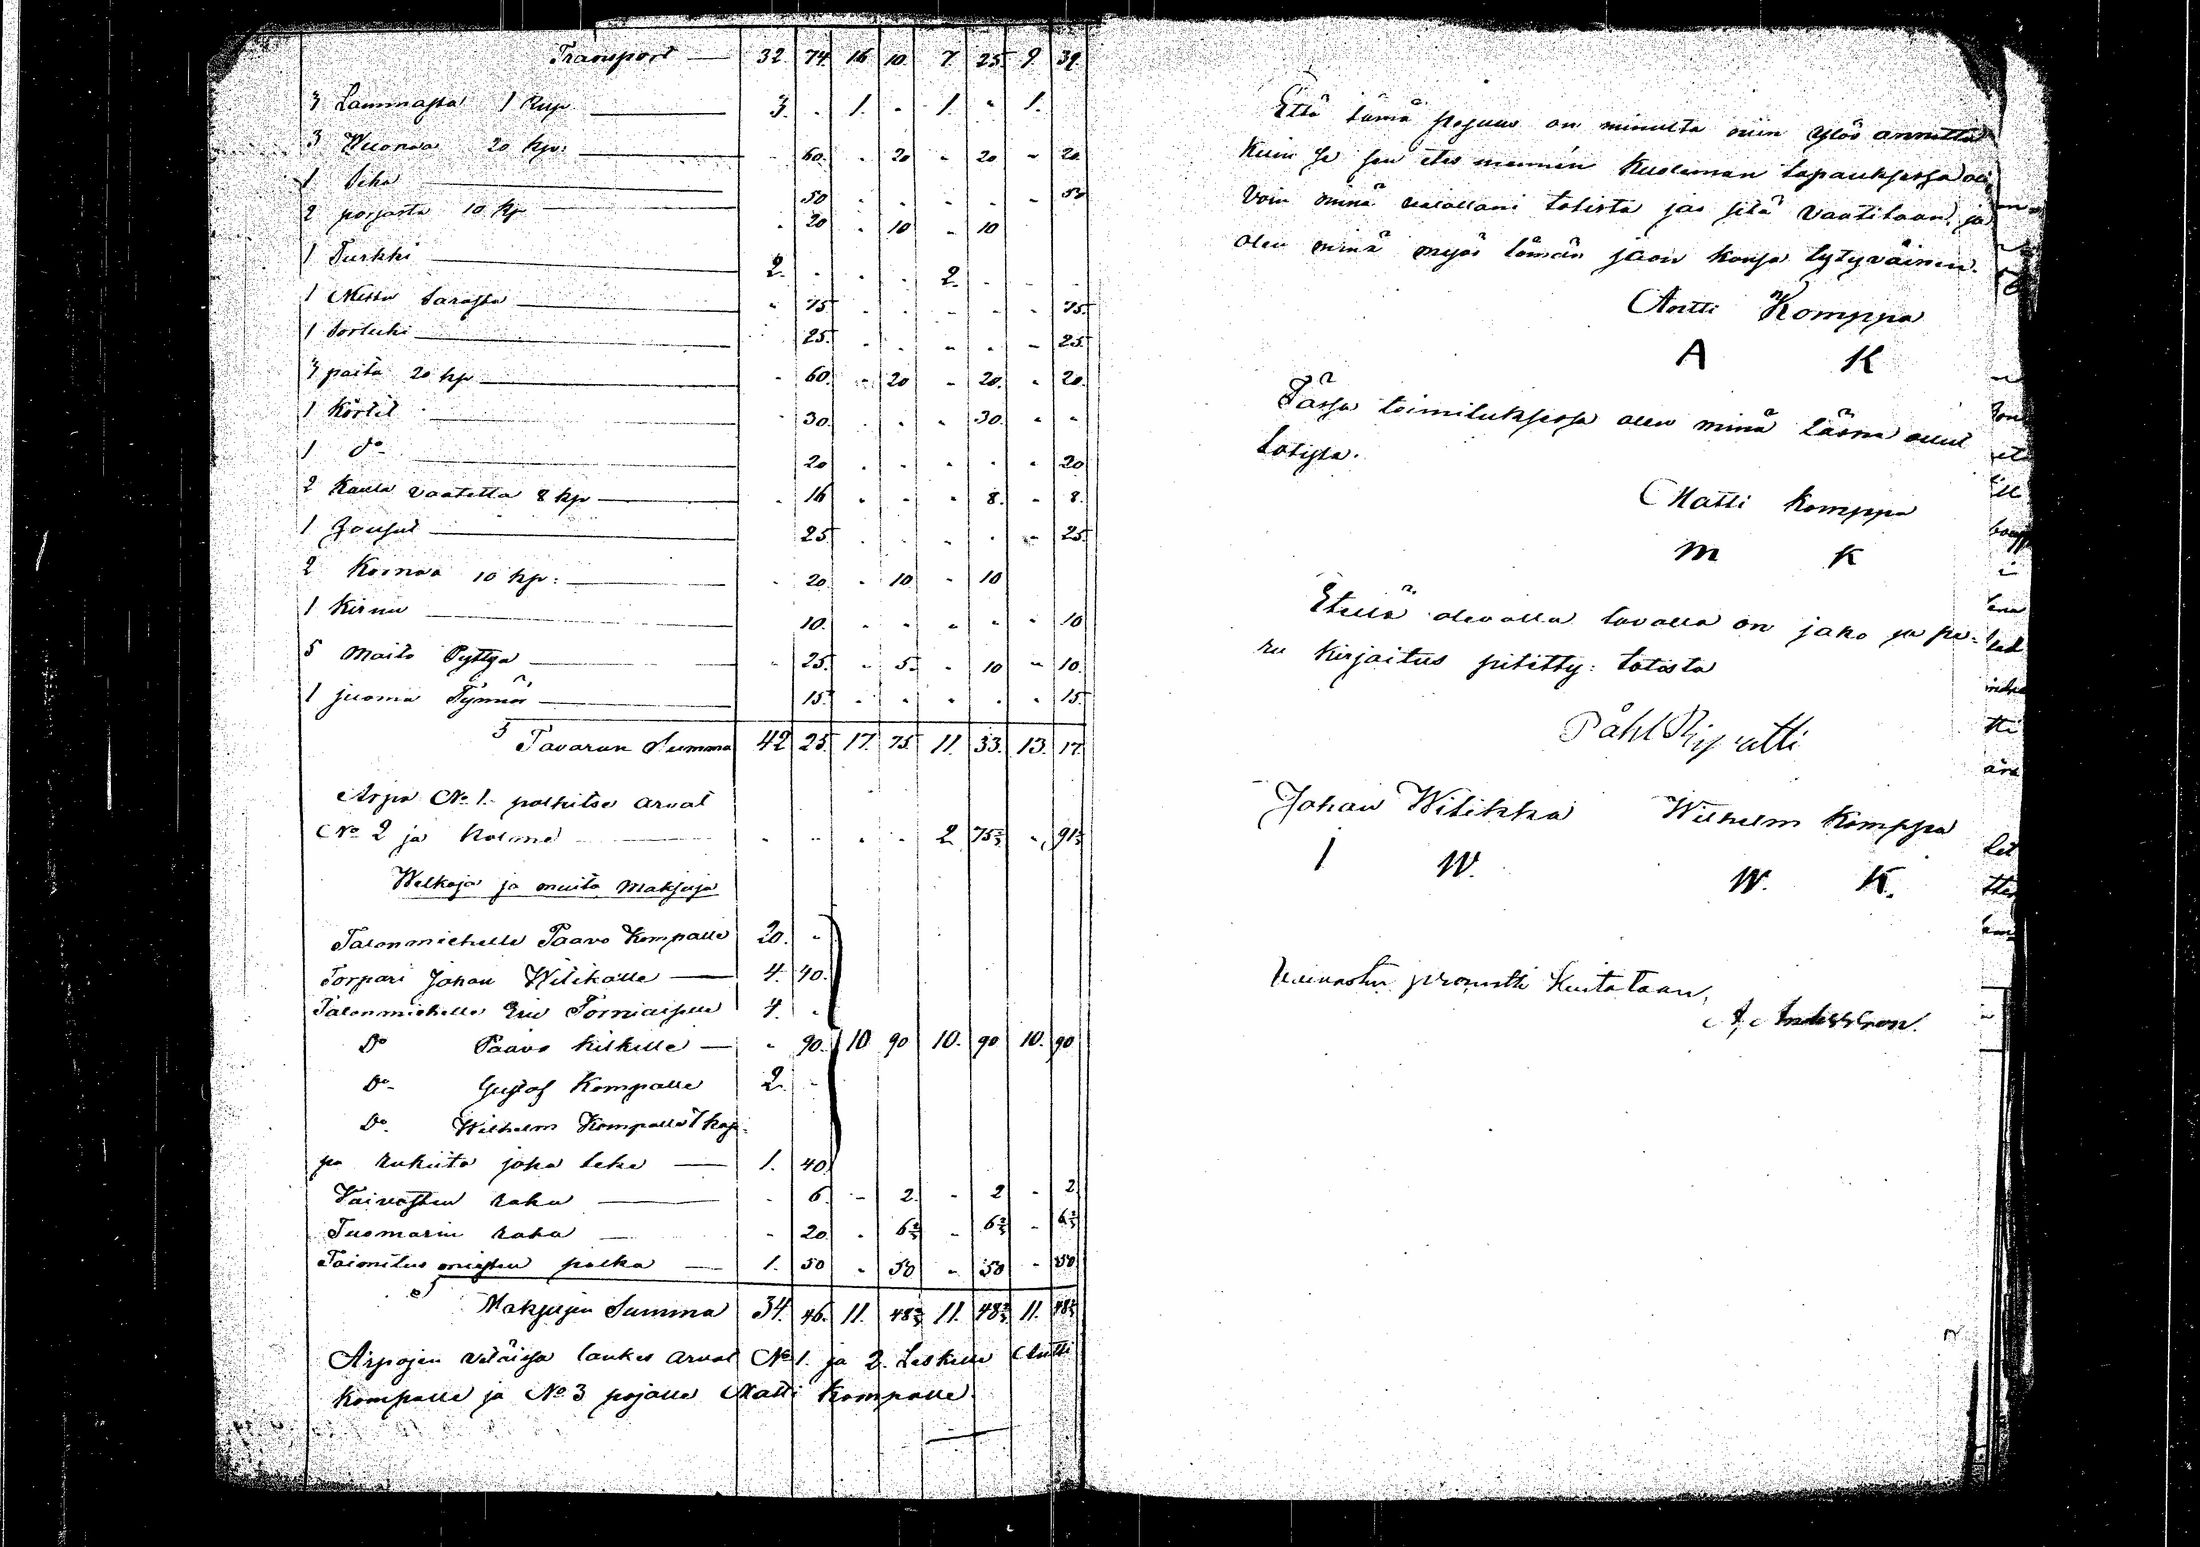 Transport — 32. 74. 16 10. 7. 25. 9. 39.
3 Lammasta 1 Rup. — 3. - 1. - 1. - 1.
3 Wuonaa 20 kp: — - 60. - 20 - 20 - 20
1 Sika — 50 - - - - - 50
2 porsasta 10 kp — - 20 - 10 - 10
1 Turkki — 2. - - - 2. - - -
1 Messu — - 75 - - - - - 75.
1 — 25. - - - - - 25.
3 paita 20 kp — - 60. - 20 - 20. - 20.
1 Körtit — - 30. - - - 30. - -
1 do — 20 - - - - - 20
2 Kaula vaatetta 8 kp — - 16 - - - 8. - 8.
1 — 25 - - - - - 25
2 Koinaa 10 kp: — - 20. - 10 - 10
1 Kirnu — 10. - - - - - 10
5 Maito Pyttyä — - 25. - 5. - 10 - 10.
1 juoma Tynnör — 15. - - - - - 15.
Tavaran Summa 42 25. 17. 75. 11. 33. 13. 17.
Arpa No 1. palkitse arvat
No 2 ja kolme — - - - - 2 75⅔ - 91⅔
Welkoja ja muita Maksuja
Talonmiehelle Paavo Kompalle 20. -
Torpari Johan Wilikalle — 4. 40.
Talonmiehelle Eric Torniaiselle 4. -
Do Paavo kilkille — - 90. 10 90 10. 90 10. 90
Do Gustaf Kompalle 2. -
Do Wilhelm Kompalle 7 kap-
pa rukiita joka teke — 1. 40.
Vaivasten raha — - 6. - 2. - 2 - 2
Tuomarin raha — - 20. - 6⅔ - 6⅔ - 6⅔
Toimitus miesten palka — 1. 50 - 50 - 50 - 50
Maksujen Summa 34. 46. 11. 48⅔ 11. 48⅔ 11. 48⅔
Arpojen vetäissä lankes arvat No 1. ja 2. Leskelle Antti
Kompalle ja No 3 pojalle Matti Kompalle.
Että tämä pesuus on minulta niin ylös annettu
kuin se sen etes mennin kuoleman tapauksessa oli
voin minä valallani totista jos sitä vaatitaan, ja
olen minä myös tämän jaon kansa tytyväinen.
Antti Komppa
A K
Tässä toimituksessa olen minä läsnä ollut
totista.
Matti Komppa
M K
Etellä olevalla tavalla on jako ja pe-
ru kirjoitus pitetty: totista
Påhl
Johan Wilikka Wilhelm Komppa
I W. W. K.
Vaivasten prosentti Kuitataan,
A, Andersson.